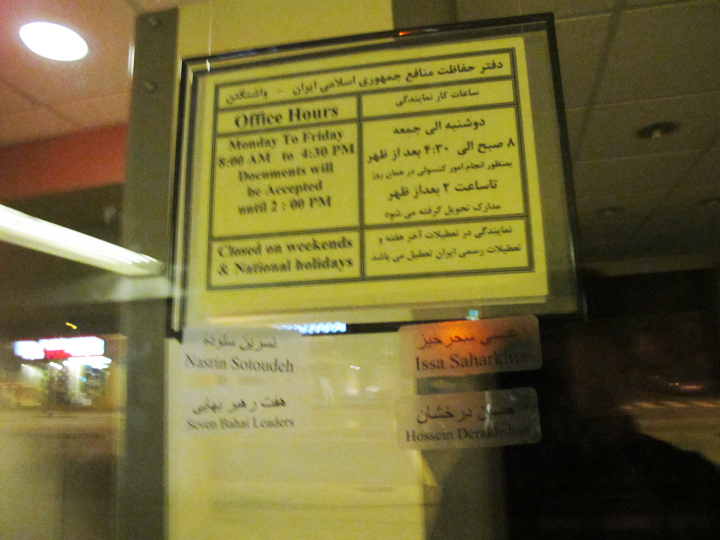 دفتر حفاظت منافع جمهوری اسلامی ایران - واشنگتن
Office Hours
Monday To Friday
8:00 AM to 4:30 PM
Documents will
be Accepted
until 2 : 00 PM
Closed on weekends
& National holidays
ساعات کار نمایندگی
دوشنبه الی جمعه
۸ صبح الی ۴:۳۰ بعد از ظهر
بمنظور انجام امور کنسولی در همان روز
تا ساعت ۲ بعداز ظهر
مدارک تحویل گرفته می شود
نمایندگی در تعطیلات آخر هفته و
تعطیلات رسمی ایران تعطیل می باشد
نسرین ستوده
Nasrin Sotoudeh
عیسی سحرخیز
Issa Saharkhiz
هفت رهبر بهایی
Seven Bahai Leaders
حسین درخشان
Hossein Derakhshan